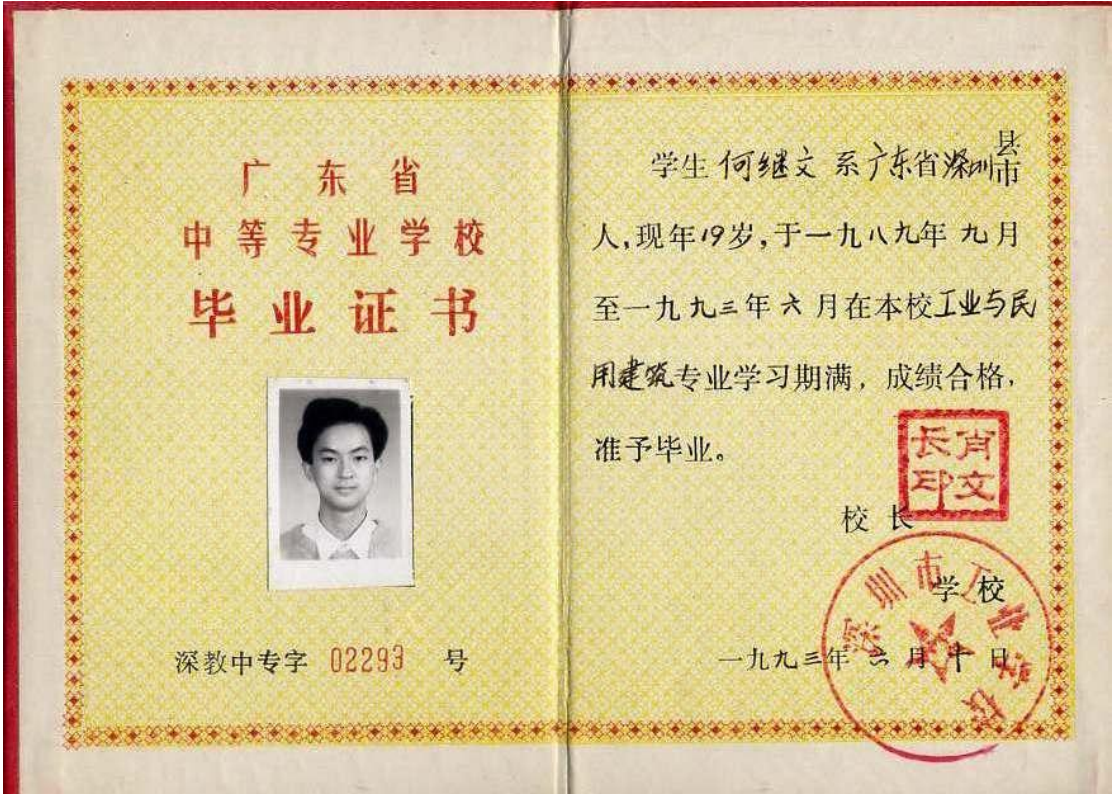 广东省
中等专业学校
毕业证书
深教中专字 02293 号
学生 何继文 系广东省深圳县市
人,现年19岁,于一九八九年九月
至一九九三年六月在本校工业与民
用建筑专业学习期满,成绩合格,
准予毕业。
肖文长印
校长
学校
深圳市工业学校
一九九三年六月十日